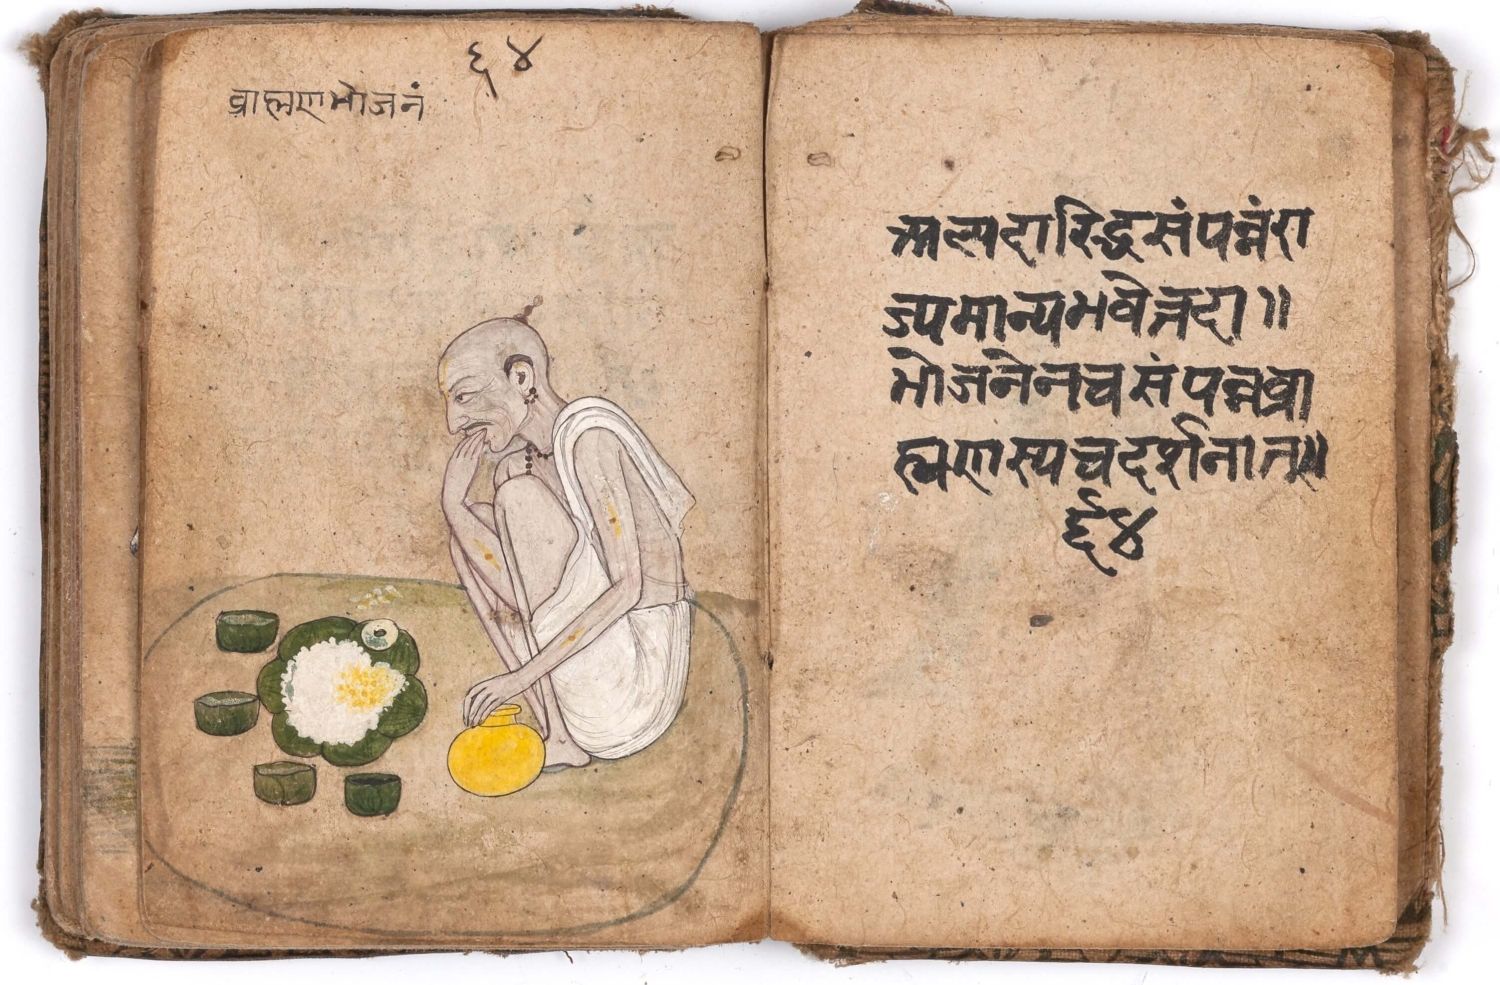 ६४
ब्राह्मणभोजनं
अल्पदारिद्धिसंपन्नंरा
ज्यमान्यभवेत्तदा॥
भोजनेनचसंपन्नब्रा
ह्मणस्यचदर्शनात्॥
६४